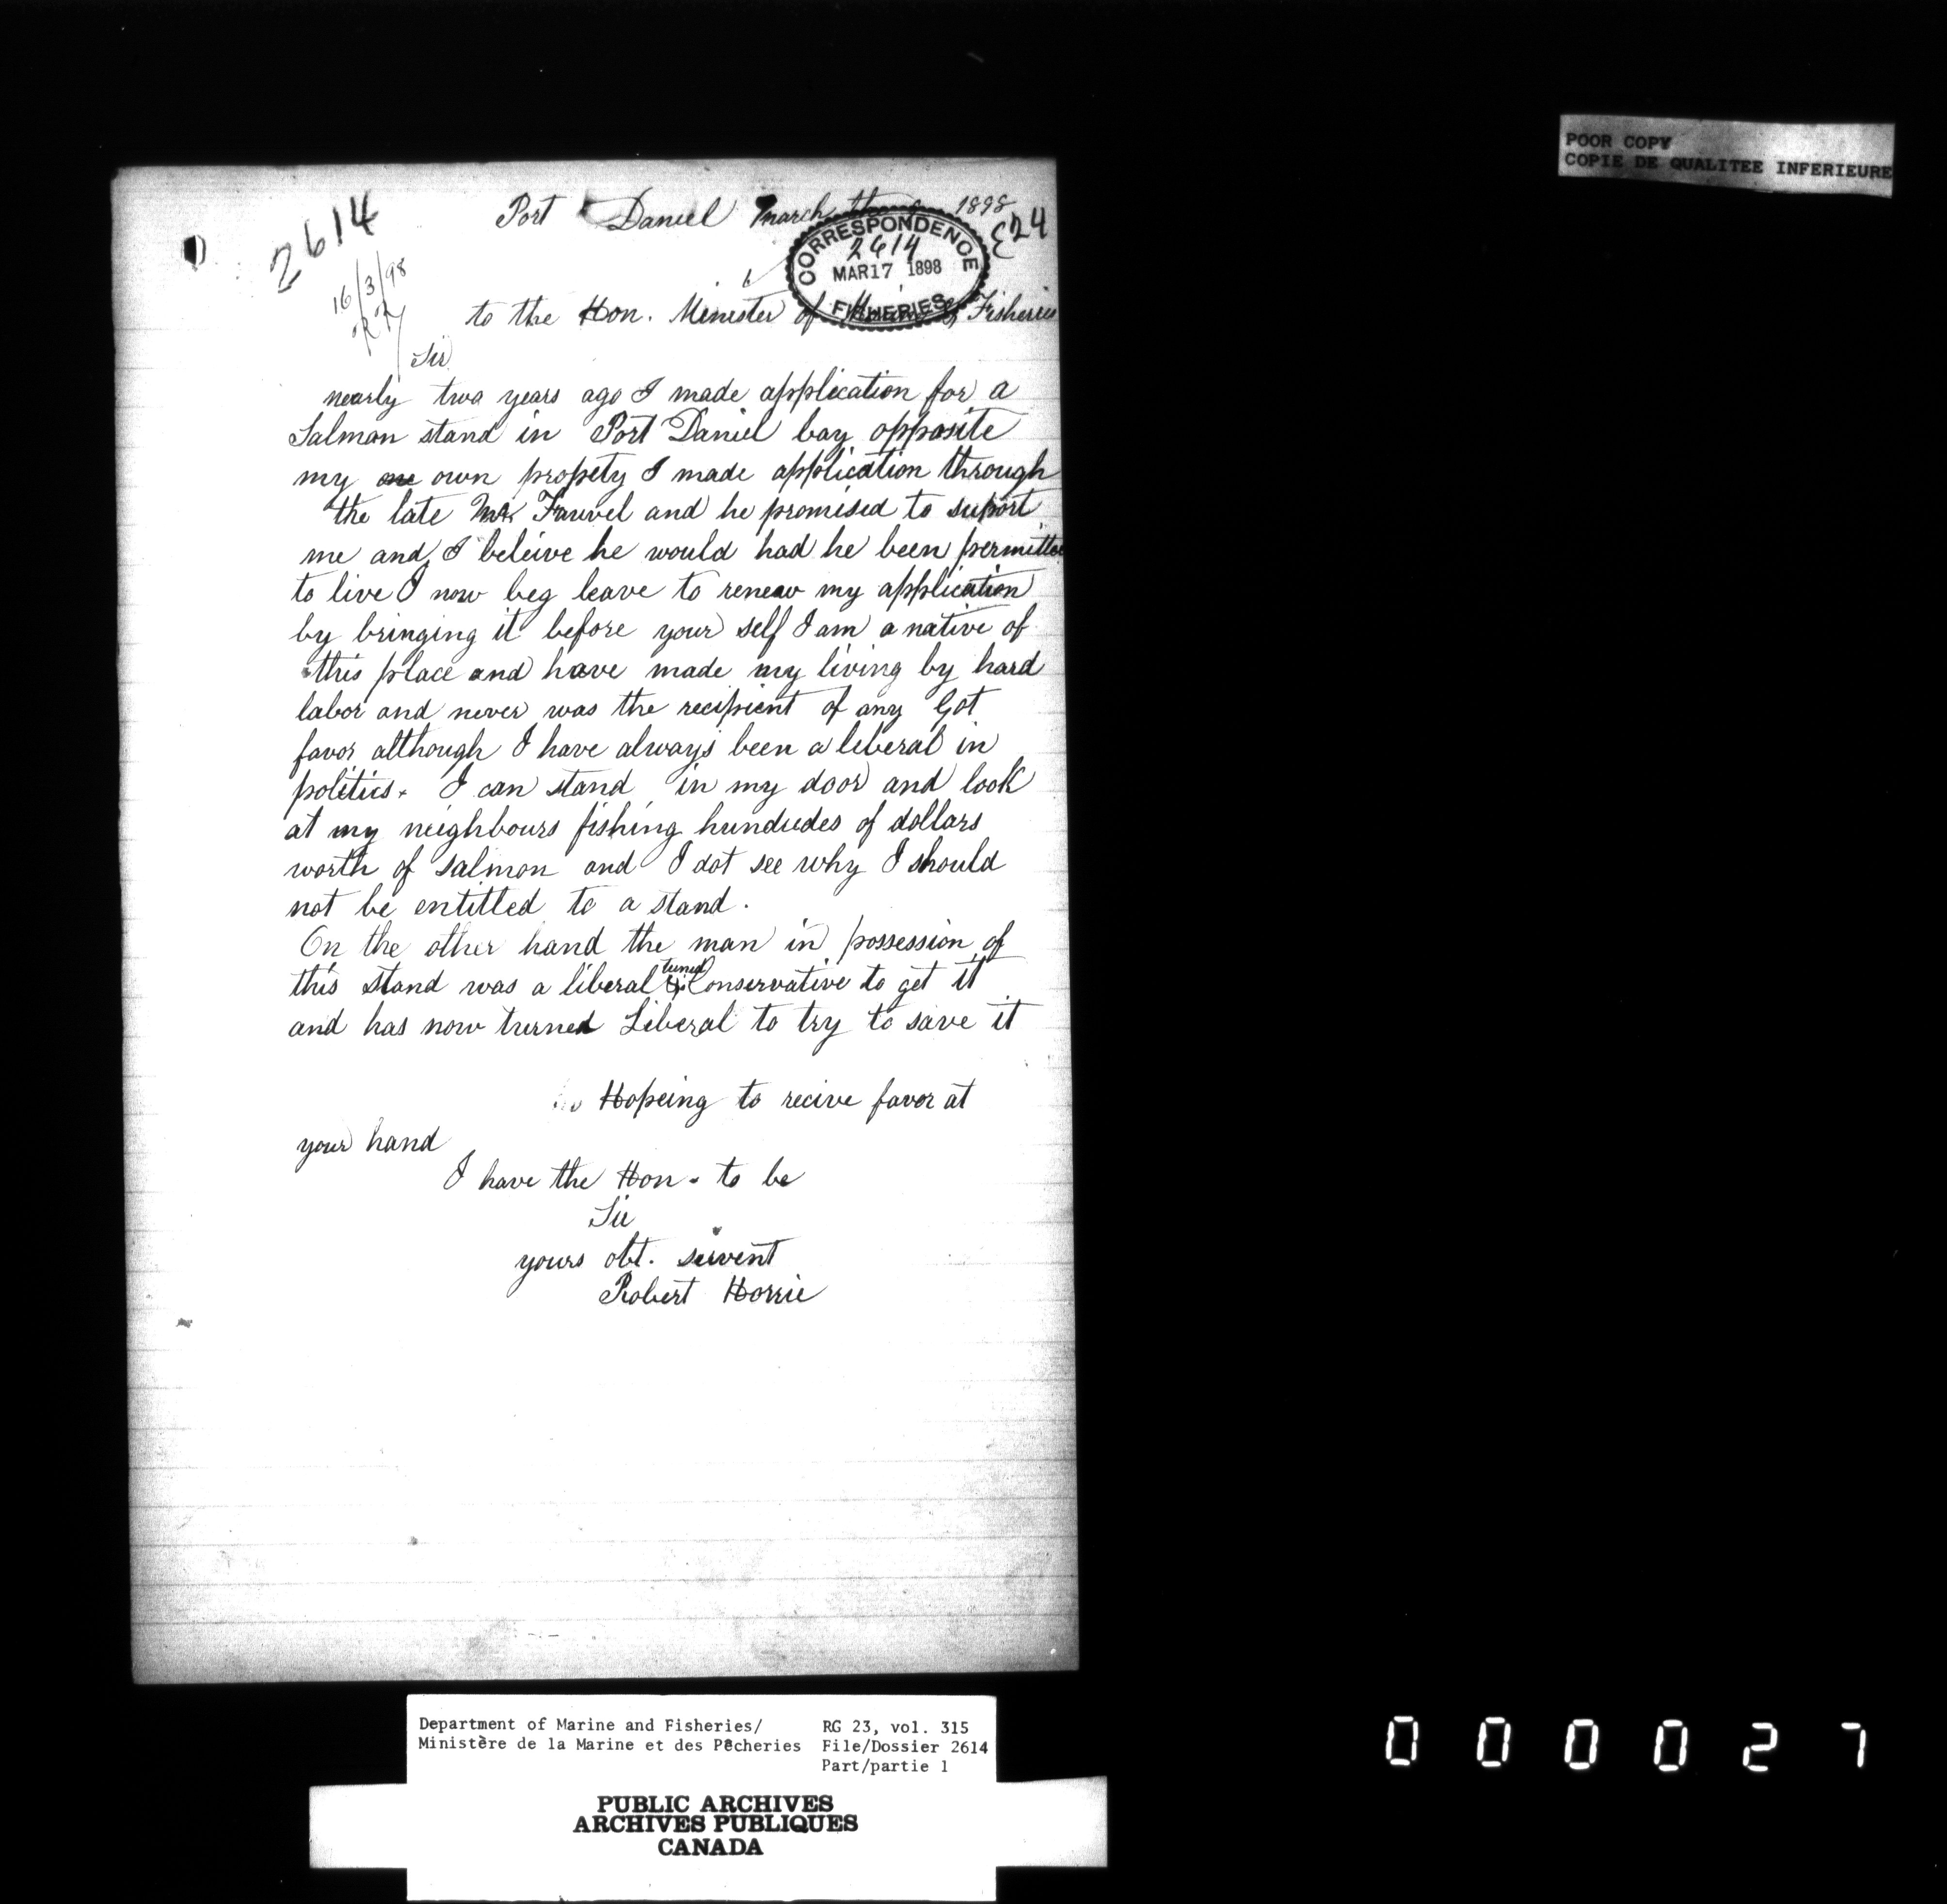 POOR COPY
COPIE DE QUALITEE INFERIEURE
2614
Port Daniel march the 1898
E24
16/3/98
CORRESPONDENCE
2614
MAR 17 1898
FISHERIES
to the Hon. Minister of & Fisheries
Sir
nearly two years ago I made application for a
Salmon stand in Port Daniel bay opposite
my one own propety I made application through
the late Mr Fauvel and he promised to suport
me and I beleive he would had he been permitted
to live I now beg leave to renew my application
by bringing it before your self I am a native of
this place and have made my living by hard
labor and never was the recipient of any Got
favor although I have always been a liberal in
politics. I can stand in my door and look
at my neighbours fishing hundredes of dollars
worth of salmon and I dot see why I should
not be entitled to a stand.
On the other hand the man in possession of
this stand was a liberal turned Conservative to get it
and has now turned Liberal to try to save it
Hopeing to recive favor at
your hand
I have the Hon. to be
Sir
yours obt. servent
Robert Horrie
Department of Marine and Fisheries/ RG 23, vol. 315
Ministère de la Marine et des Pêcheries File/Dossier 2614
Part/partie 1
PUBLIC ARCHIVES
ARCHIVES PUBLIQUES
CANADA
000027